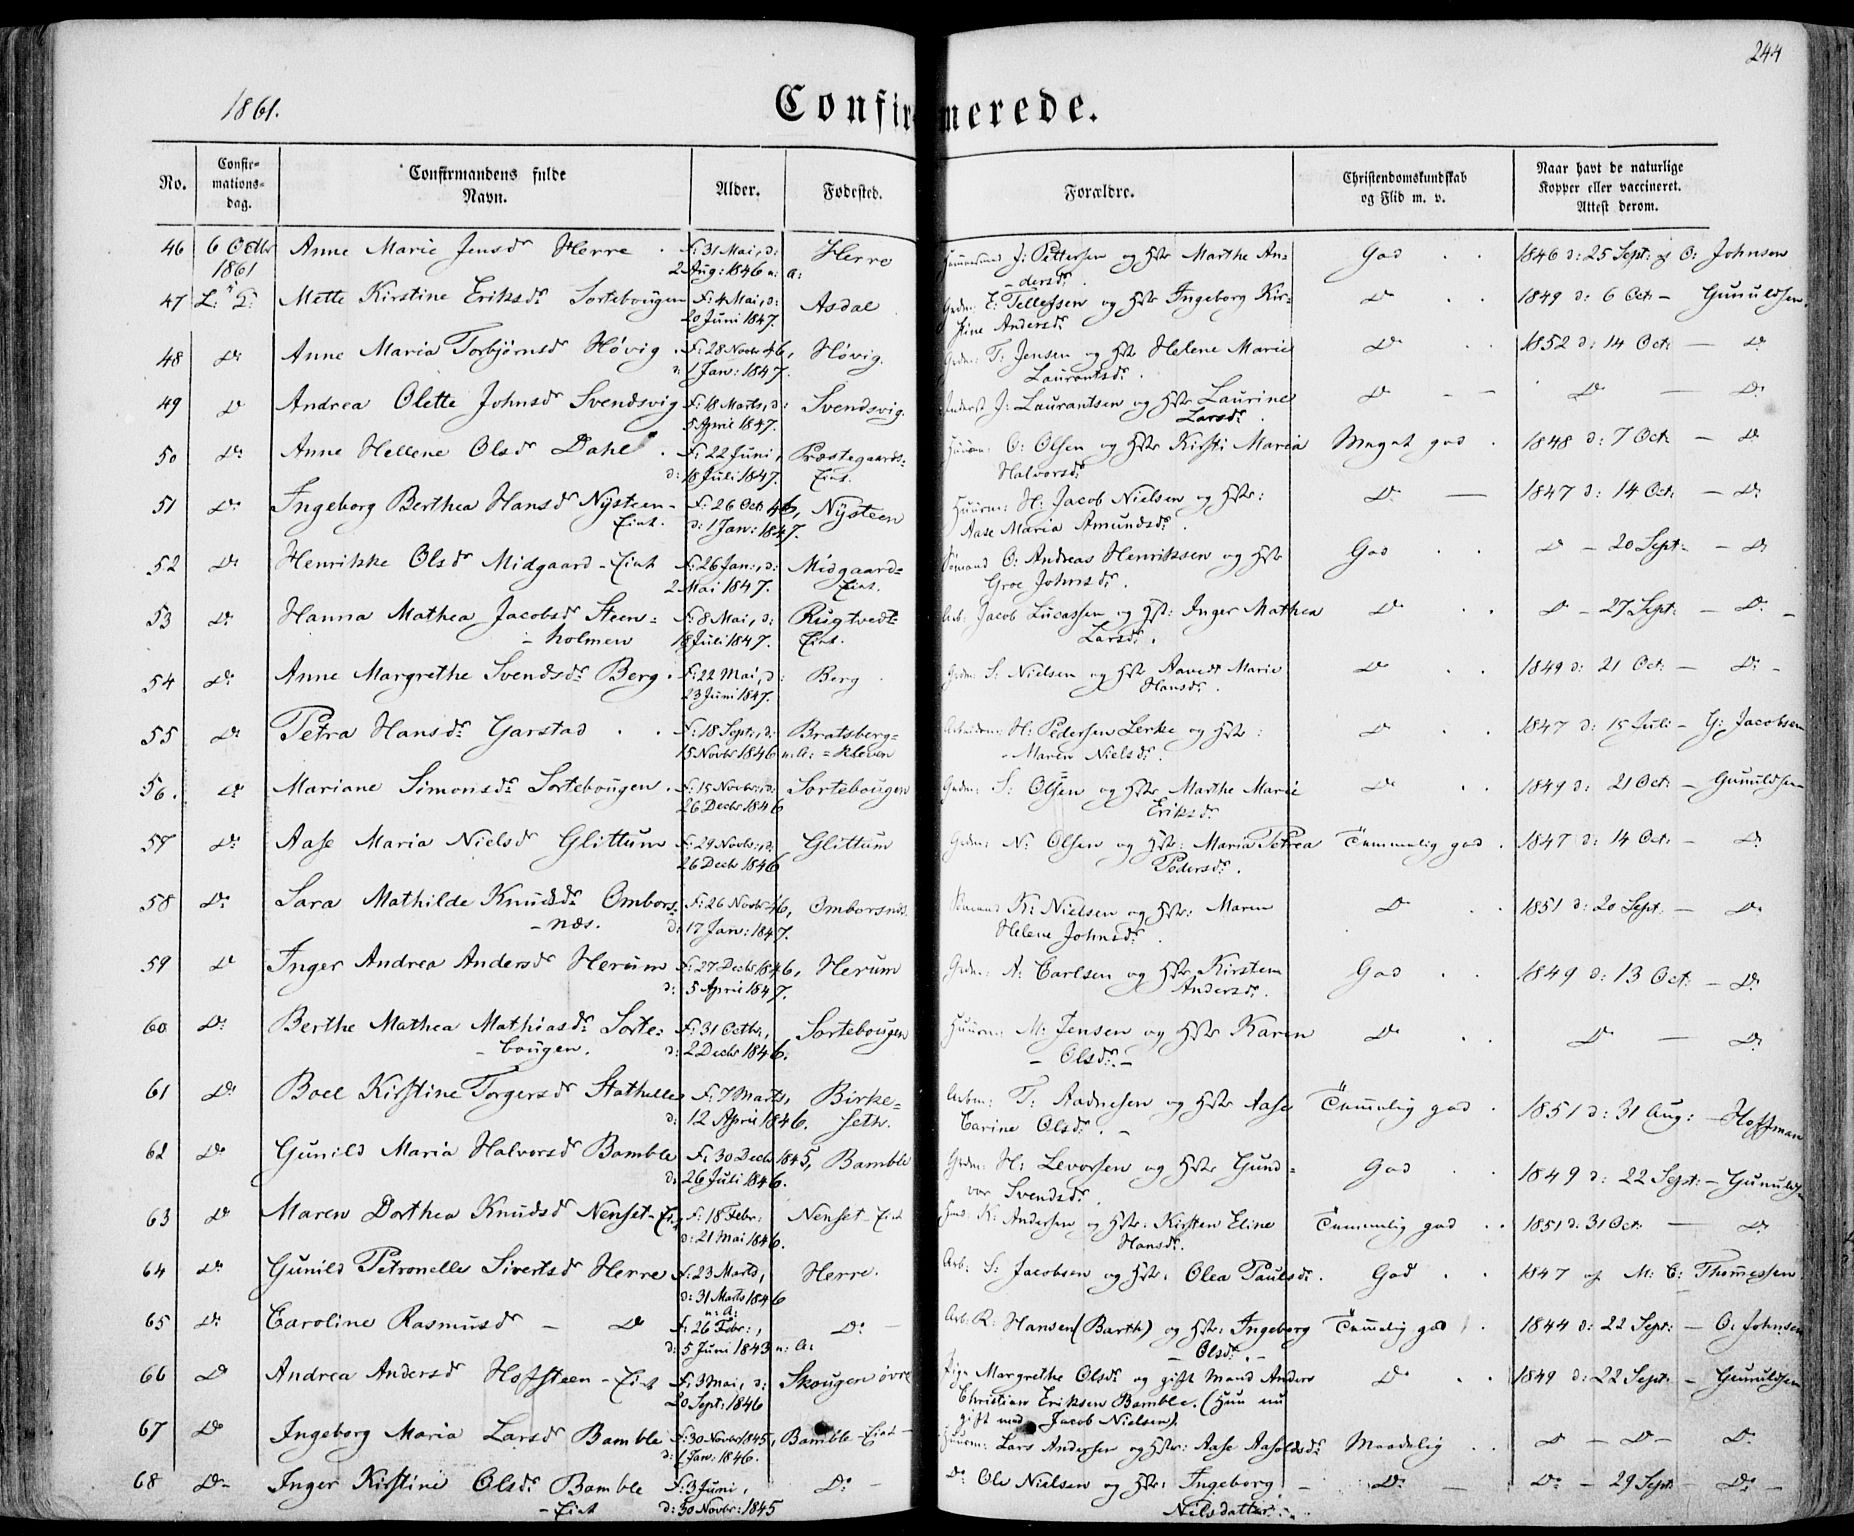 244
1861.
Confirmerede.
No. Confir-mations-dag. Confirmandens fulde Navn. Alder. Fødested. Forældre. Christendomskundskab og Flid m. v. Naar havt de naturlige Kopper eller vaccineret. Attest derom.
46 6 Octbr 1861 Anne Marie Jensdr Herre f: 31 Mai, d: 2 Aug: 1846 n: a: Herre J: Pettersen og Hstr Marthe Andersdr. God 1846 d: 25 Sept: af O: Johnsen
47 L. T. Mette Kirstine Eriksdr Sortebougen f: 4 Mai, d: 20 Juni 1847. Asdal Grdm: E: Tellefsen og Hstr Ingeborg Kirstine Andersdr Do 1849 d: 6 Oct: – Gunuldsen
48 Do Anne Maria Torbjørnsdr Høvig f: 28 Novbr 46, d: 1 Jan: 1847. Høvig. Grdm: T: Jensen og Hstr Helene Marie Laurantsdr. Do 1852 d: 14 Oct: – Do
49 Do Andrea Olette Johnsdr Svendsvig f: 18 Marts, d: 5 April 1847. Svendsvig. J: Laurantsen og Hstr Laurine Larsdr. Do – Do – Do
50 Do Anne Hellene Olsdr Dahl f: 22 Juni, d: 18 Juli 1847. Præstegaards-Eiet. Huusm: O: Olsen og Hstr Kirsti Maria Halvorsdr Meget god 1848 d: 7 Oct: – Do
51 Do Ingeborg Berthea Hansdr Nysteen-Eiet. f: 26 Oct: 46, d: 1 Jan: 1847. Nysteen Huusm: H: Jacob Nielsen og Hstr: Aase Maria Amundsdr. Do – 1847 d: 14 Oct: – Do
52 Do Henrikke Olsdr Midgaard-Eiet f: 26 Jan:, d: 2 Mai 1847. Midgaard-Eiet. Sømand O: Andreas Henriksen og Hstr Groe Johnsdr. God Do – 20 Sept: – Do
53 Do Hanna Mathea Jacobsdr Steen-holmen f: 8 Mai, d: 18 Juli 1847. Rugtvedt-Eiet. Arb: Jacob Lucassen og Hst: Inger Mathea Larsdr. Do Do – 27 Sept: – Do –
54 Do Anne Margrethe Svendsdr Berg. f: 22 Mai, d: 23 Juni 1847. Berg Grdm: S: Nielsen og Hstr Marie Hansdr. Do 1849 d: 21 Oct: – Do –
55 Do Petra Hansdr Garstad f: 18 Sept:, d: 15 Novbr 1846 n: A: Bratsberg-kleven Arbeidsm: H: Pedersen Lerke og Hstr: Maren Nielsdr. Do 1847 d: 15 Juli – G: Jacobsen
56. Do Mariane Simonsdr Sortebougen. f: 15 Novbr:, d: 26 Decbr 1846 Sortebougen Grdm: S: Olsen og Hstr Marthe Marie Eriksdr Do 1849 d: 21 Oct: – Gunuldsen
57 Do Aase Maria Nielsdr Glittum f: 29 Novbr:, d: 26 Decbr 1846 Glittum Grdm: N: Olsen og Hstr: Maria Petrea Pedersdr. Temmelig god. 1847 d: 14 Oct: – Do
58 Do Sara Mathilde Knudsdr Ombors-næs. f: 26 Novbr 46, d: 17 Jan: 1847. Omborsnæs Sømand K: Nielsen og Hstr: Maren Helene Johnsdr. Do 1851 d: 20 Sept: – Do
59 Do Inger Andrea Andersdr Herum f: 27 Decbr 1846, d: 5 April 1847. Herum Grdm: A: Carlsen og Hstr Kirsten Andersdr. God 1849 d: 13 Oct: – Do
60 Do Berthe Mathea Mathiasdr Sorte-bougen. f: 31 Octbr, d: 2 Decbr 1846. Sortebougen Huusm: M: Jensen og Hstr Karen Olsdr. – Do Do – Do
61 Do Boel Kirstine Torgersdr Stathelle f: 7 Marts, d: 12 April 1846. Birke-seth. Arbm: T: Aadnesen og Hstr Aase Carine Olsdr. – Temmelig god. 1851 d: 31 Aug: – Hoffman
62 Do Gunild Maria Halvorsdr Bamble f: 30 Decbr 1845, d: 26 Juli 1846. Bamble Grdm: H: Levorsen og Hstr Gund-vor Svendsdr. God 1849 d: 22 Sept: – Gunuldsen
63 Do Maren Dorthea Knudsdr Nenset-Eiet f: 18 Febr: d: 21 Mai 1846. Nenset-Eiet K: Andersen og Hstr: Kirsten Eline Hansdr. Temmelig god 1851 d: 31 Oct: – Do
64 Do Gunild Petronelle Sivertsdr Herre f: 23 Marts, d: 31 Marts 1846 n: A: Herre. Arb: S: Jacobsen og Hstr: Olea Paulsdr. God 1847 af M: C: Thomessen
65 Do Caroline Rasmusdr – Do f: 26 Febr:, d: 5 Juni 1843 n: A: Do – Arb: R: Hansen (Barth) og Hstr: Ingeborg Olsdr. – Temmelig god 1844 d: 22 Sept: – O: Johnsen
66 Do Andrea Andersdr Hofsteen-Eiet f: 3 Mai, d: 20 Sept: 1846 Skougen øvre Pige Margrethe Olsdr og gift Mand Anders Christian Eriksen Bamble. (Hun nu gift med Jacob Nielsen). Do 1849 d: 22 Sept: – Gunuldsen
67 Do Ingeborg Maria Larsdr Bamble f: 30 Novbr 1845, d: 1 Jan: 1846. Bamble-Eiet – Huusm: Lars Andersen og Hstr: Aase Aasoldsdr Maadelig Do – Do – Do
68 Do Inger Kirstine Olsdr Bamble-Eiet f: 3 Juni, d: 30 Novbr: 1845 Do – Do Ole Nielsen og Hstr: Ingeborg Nilsdatter. Do – Do – 29 Sept: – Do –